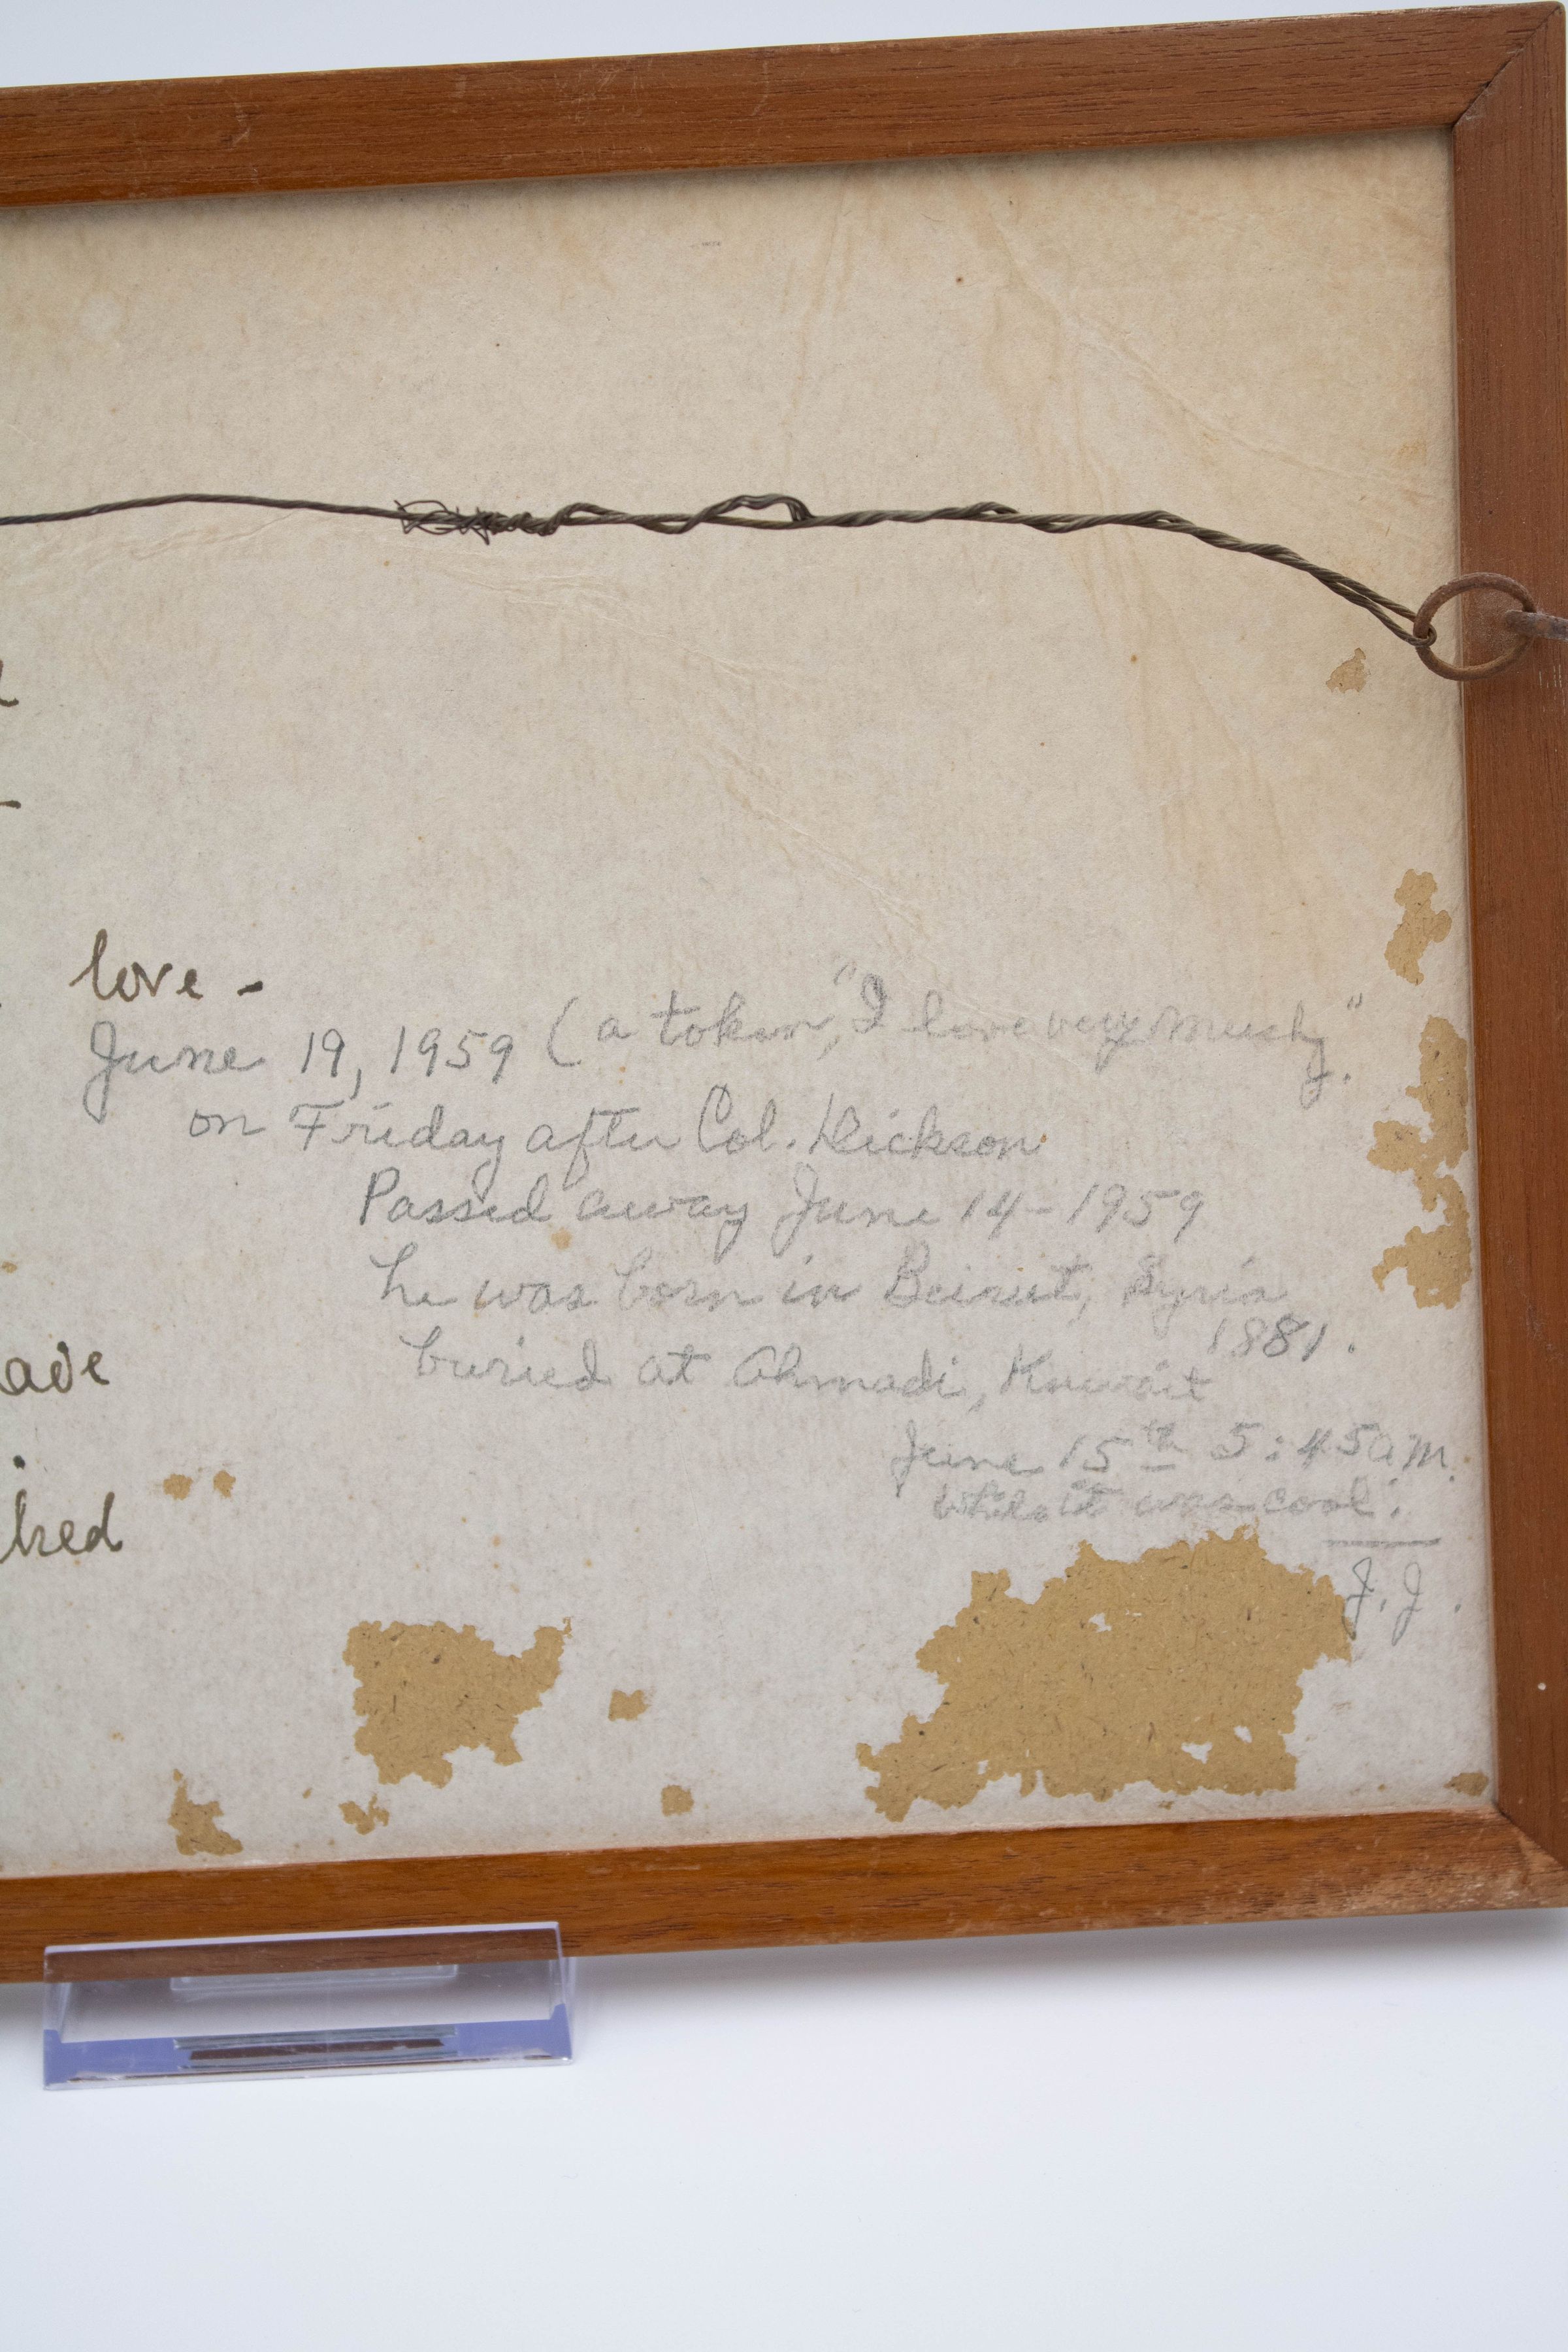 love -
June 19, 1959 (a token, "I love very much".
on Friday after Col. Dickson
Passed away June 14 - 1959
he was born in Beirut, Syria
1881.
buried at Ahmadi, Kuwait
ade
June 15th 5:45 a.m.
while it was cool.
J.J.